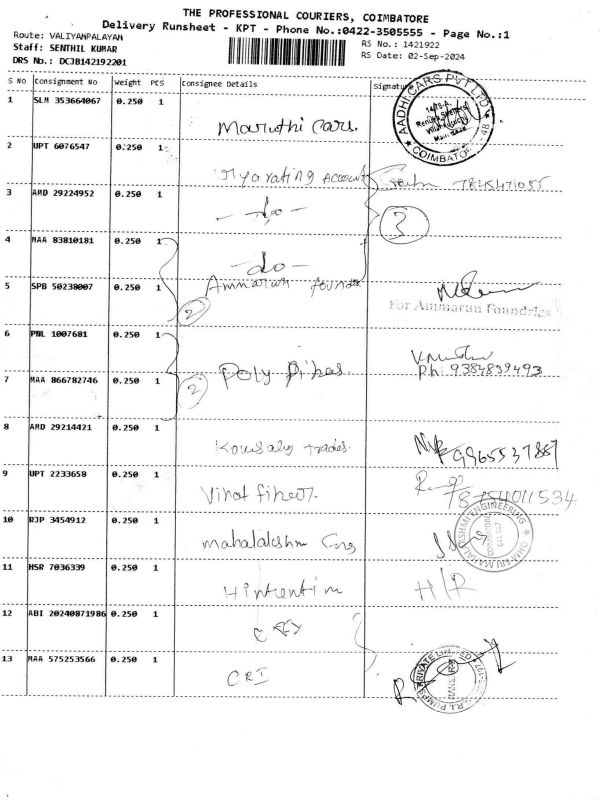 THE PROFESSIONAL COURIERS, COIMBATORE
Delivery Runsheet - KPT - Phone No.:0422-3505555 - Page No.:1
Route: VALIYAMPALAYAM
RS No.: 1421922
Staff: SENTHIL KUMAR
RS Date: 02-Sep-2024
DRS No.: DCJB142192201
S No Consignment No Weight PCS Consignee Details Signature
AADHI CARS PVT LTD
COIMBATORE
1 SLM 353664067 0.250 1 Maruthi Cars.
2 UPT 6076547 0.250 1
Account
3 AMD 29224952 0.250 1 - do -
3
4 MAA 83810181 0.250 1 - do -
5 SPB 50238007 0.250 1 Ammarun
2
For Ammarun Foundries
6 PNL 1007681 0.250 1
7 MAA 866782746 0.250 1 Poly
2
Ph: 9384839493
8 AMD 29214421 0.250 1 trades.
9965537867
9 UPT 2233658 0.250 1
10 RJP 3454912 0.250 1
ENGINEERING
11 HSR 7036339 0.250 1
H/R
12 ABI 20240871986 0.250 1
13 MAA 575253566 0.250 1 CRI
C.R.I. PUMPS PRIVATE LIMITED